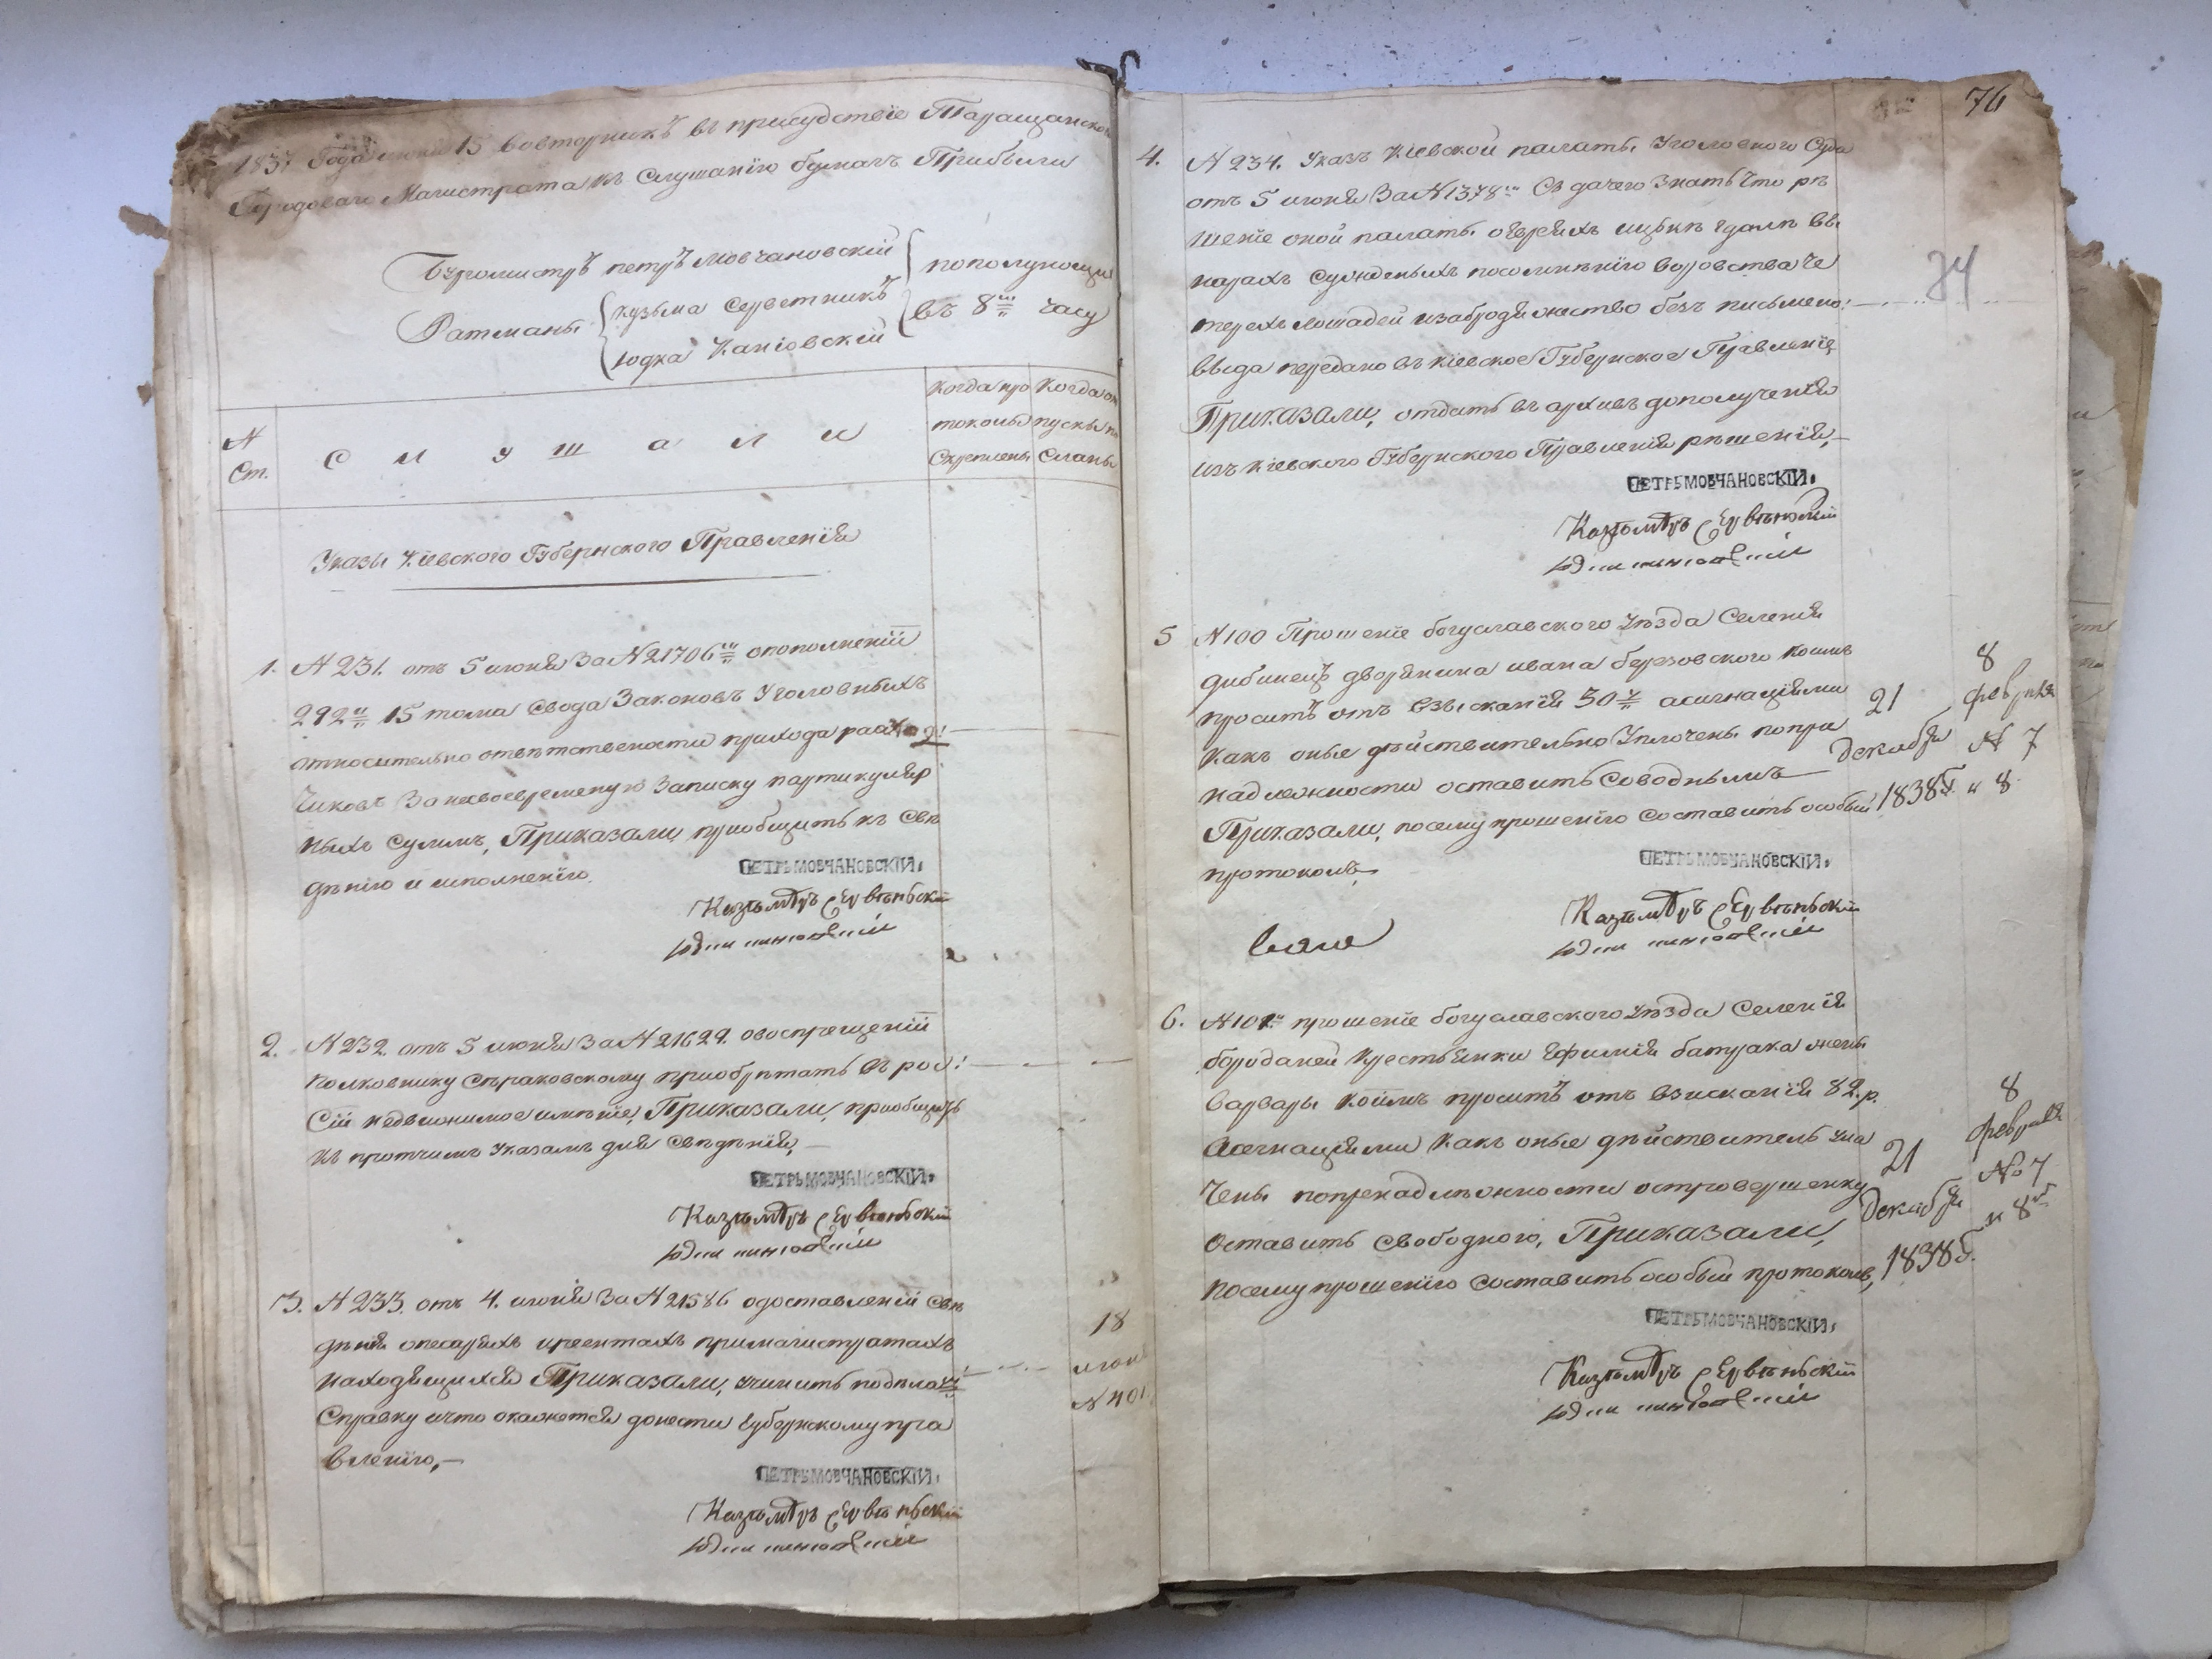 1837 Года июня 15 вовторникъ въ присудствіе Таращанского
Городоваго Магистрата къ Слушанію бумагъ Прибыли
Бурмистръ петръ Мовчановскій
пополуночи
Ратманы
кузьма Серветникъ
въ 8мъ часу
юдка Каніовскій
№
Ст.
С л у ш а л и
Когда про
токолы
Скреплены
Когда от
пуски по
Сланы
Указы Кіевского Губернского Правленія
1. № 231. отъ 5 июня За № 21706мъ опополненіи
292й 15 тома Свода Законовъ Уголовныхъ
относительно ответствености прихода расход
чиковъ Занесвоевременую Записку партикуляр
ныхъ Суммъ, Приказали, приобщить къ Све
денію и исполненію.
ПЕТРЪ МОВЧАНОВСКІЙ.
2. № 232. отъ 5 июня За № 21629. овоспрещеніи
полковнику Сераковскому приобретать въ рос
Сіи недвижимое именіе, Приказали, приобщить
къ протчимъ Указамъ для Сведенія,
ПЕТРЪ МОВЧАНОВСКІЙ.
3. № 233. отъ 4. июня За № 21586 одоставленіи Све
денія описарях иреентахъ примагистратахъ
находящихся Приказали, учинить поделам
Справку ичто окажется донести Губернскому пра
вленію,
18
июня
№ 401
ПЕТРЪ МОВЧАНОВСКІЙ.
76
74
4. № 234. Указъ Кіевской палаты Уголовного Суда
отъ 5 июня За № 1378мъ Съ дачею Знать что ре
шеніе оной палаты оевреяхъ
Сужденыхъ посомненію воровства че
терехъ лошадей изабродяжество безъ письмено
вида передано въ Кіевское Губернское Правленіе
Приказали, отдать въ архивъ дополученія
изъ Кіевского Губернского Правленія решенія,
ПЕТРЪ МОВЧАНОВСКІЙ.
5 № 100 Прошеніе богуславского Уезда Селенія
дибинецъ дворянина ивана березовского коимъ
проситъ отъ взысканія 50 р асигнаціями
Какъ оные действительно Уплочены попри
надлежности оставить Соводнымъ
Приказали, посему прошенію Составить особый
протоколъ
21
декабря
1838 г.
8
февраля
№ 7
и 8
ПЕТРЪ МОВЧАНОВСКІЙ.
6. № 101й прошеніе богуславского Уезда Селенія
бороданей Крестьянки Ефимія батрака жены
варвары Коимъ проситъ отъ взисканія 82. р.
Асегнаціями Какъ оные действитель упла
чены попренадлежности островершенку
Оставить свободного, Приказали,
посему прошенію Составить особый протоколъ,
21
декабря
1838 г.
8
февраля
№ 7
и 8й
ПЕТРЪ МОВЧАНОВСКІЙ.